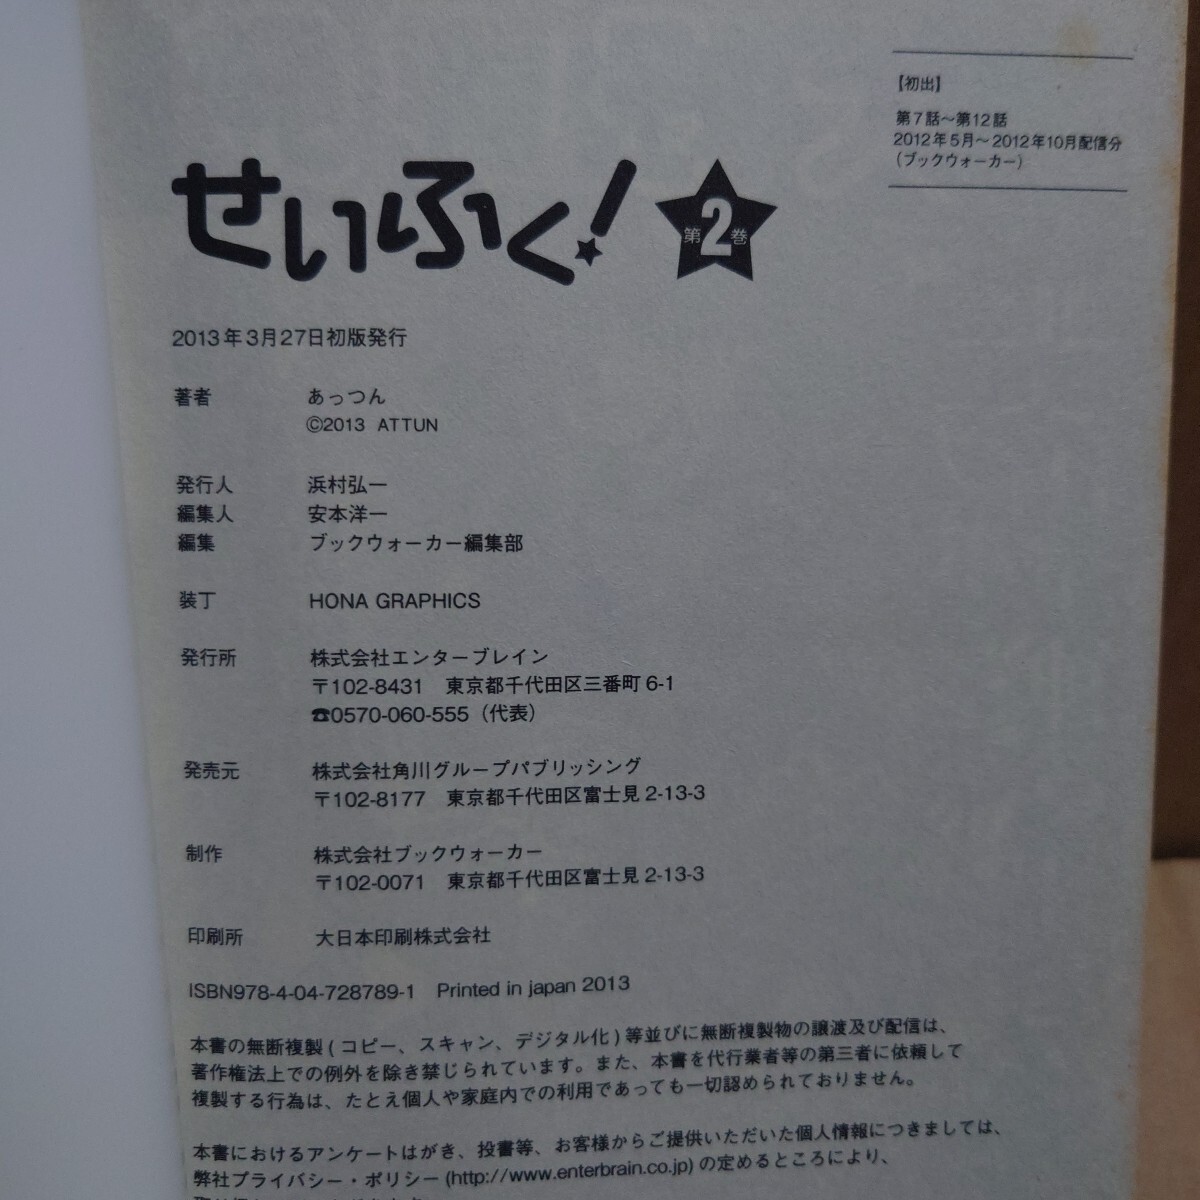 【初出】
第7話～第12話
2012年5月～2012年10月配信分
（ブックウォーカー）
せいふく！ 第2巻
2013年3月27日初版発行
著者 あっつん
©2013 ATTUN
発行人 浜村弘一
編集人 安本洋一
編集 ブックウォーカー編集部
装丁 HONA GRAPHICS
発行所 株式会社エンターブレイン
〒102-8431 東京都千代田区三番町6-1
☎0570-060-555（代表）
発売元 株式会社角川グループパブリッシング
〒102-8177 東京都千代田区富士見2-13-3
制作 株式会社ブックウォーカー
〒102-0071 東京都千代田区富士見2-13-3
印刷所 大日本印刷株式会社
ISBN978-4-04-728789-1 Printed in japan 2013
本書の無断複製(コピー、スキャン、デジタル化)等並びに無断複製物の譲渡及び配信は、
著作権法上での例外を除き禁じられています。また、本書を代行業者等の第三者に依頼して
複製する行為は、たとえ個人や家庭内での利用であっても一切認められておりません。
本書におけるアンケートはがき、投書等、お客様からご提供いただいた個人情報につきましては、
弊社プライバシー・ポリシー(http://www.enterbrain.co.jp)の定めるところにより、